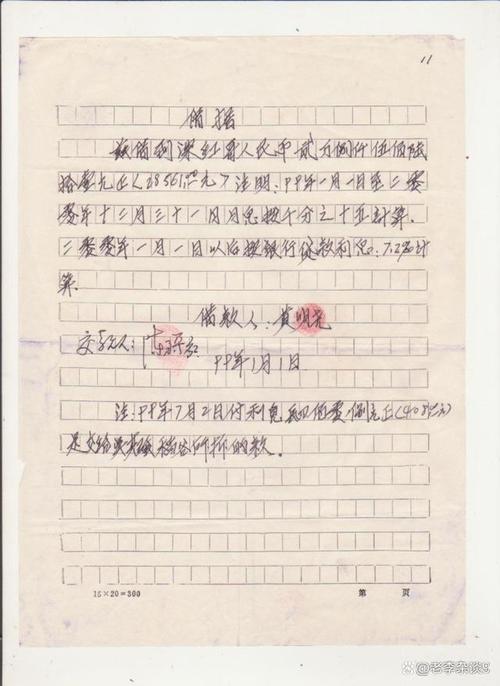 11
借据
兹借到梁红育人民币贰万捌仟伍佰陆
拾壹元正(28561.00元)注明:99年一月一日至二零
零零年十二月三十一日月息按千分之十五计算.
二零零零年一月一日以后按银行贷款利息:7.2%计
算.
借款人:黄明光
交 人:
99年1月1日
注:99年7月2日付利息 佰零捌元正(408.00元)
是交给 稻谷所折的款。
15×20=300
第 页
@老李杂谈5